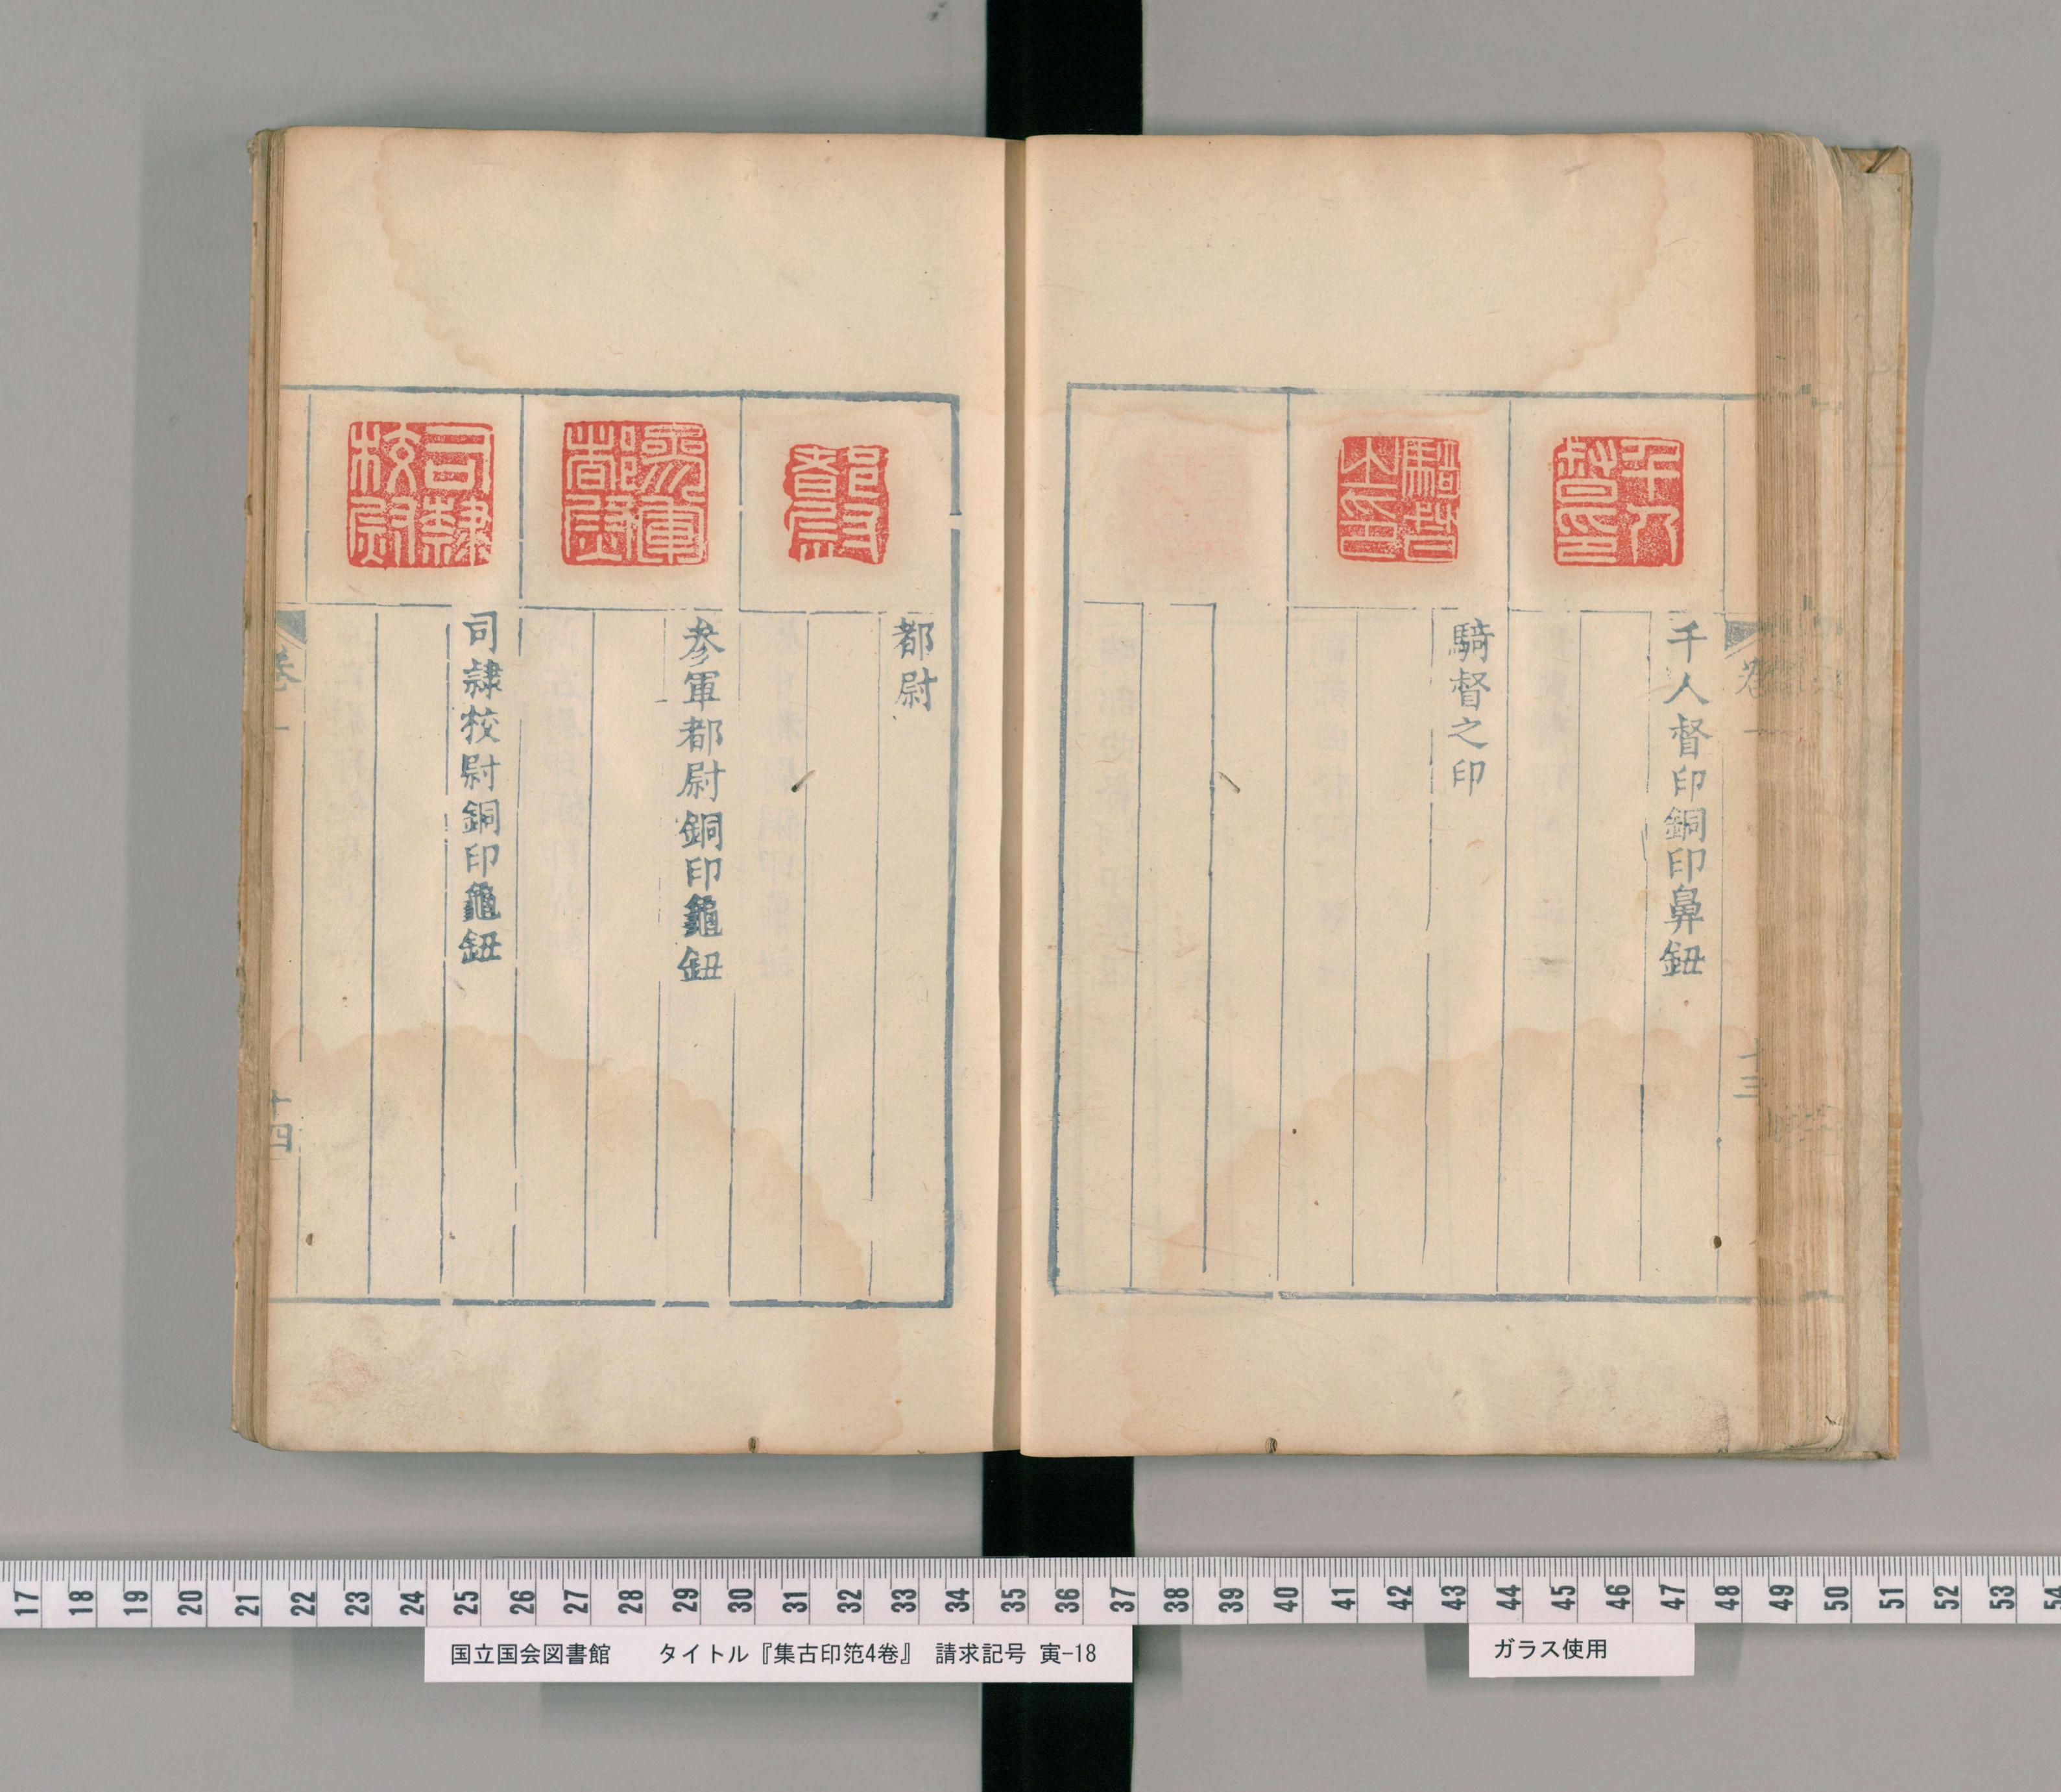 千人督印
千人督印銅印鼻鈕
騎督之印
騎督之印
都尉
都尉
參軍都尉銅印龜鈕
司隸校尉
司隸校尉銅印龜鈕
卷一
十三
卷一
十四
17 18 19 20 21 22 23 24 25 26 27 28 29 30 31 32 33 34 35 36 37 38 39 40 41 42 43 44 45 46 47 48 49 50 51 52 53 54
国立国会図書館 タイトル『集古印笵4巻』 請求記号 寅-18
ガラス使用